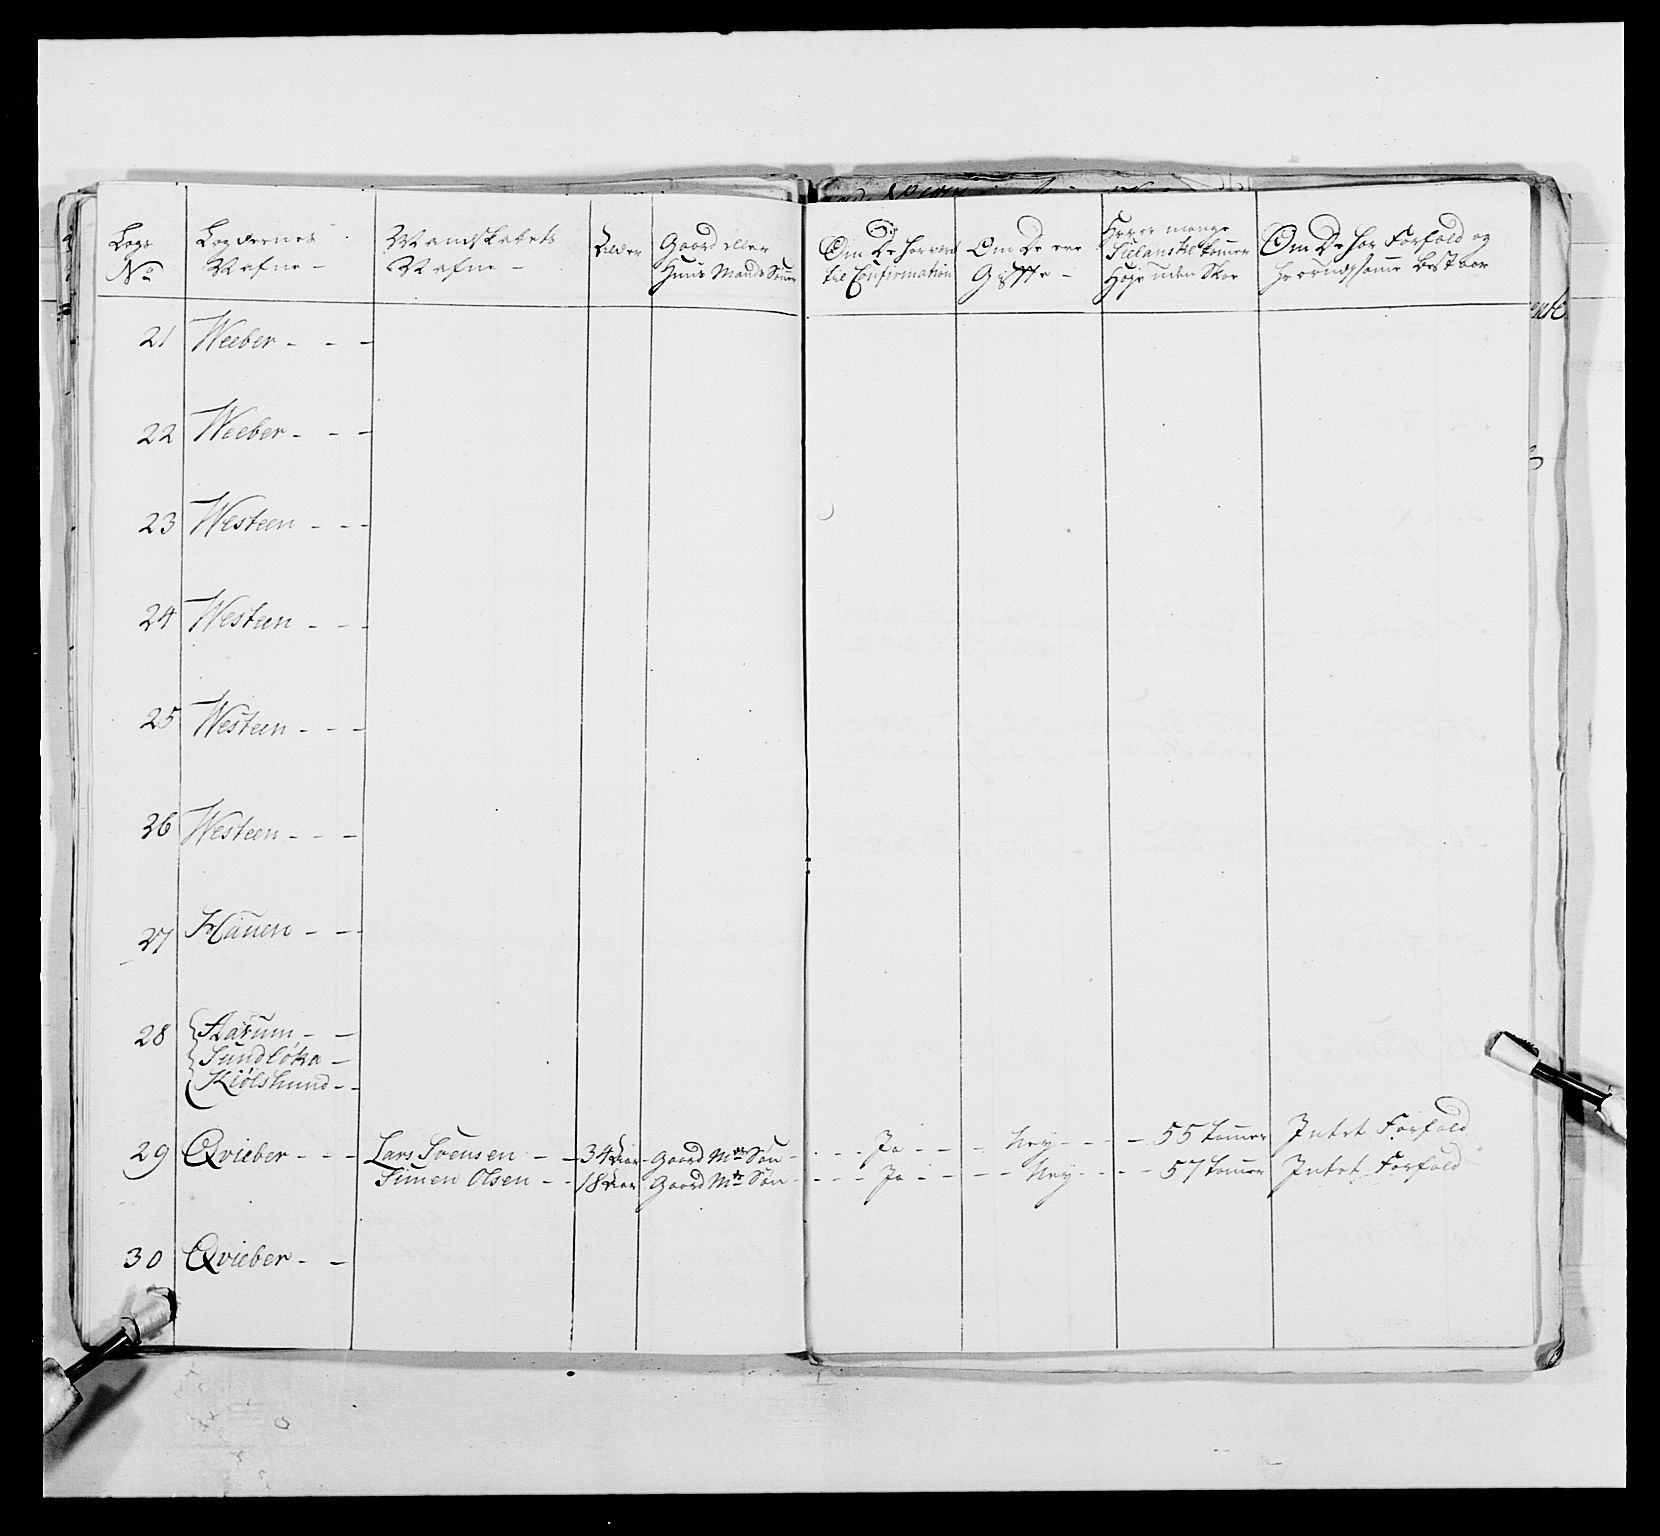 Legs No
Legdernes Nafne -
Mandskabets Nafne -
Alder
Gaard eller Huus Mands Sönner
Om De har vært til Confirmation
Om De ere Giffte -
Hvor mange Siælandske tommer Høye uden Skoe
Om De har Forfald og hvorudj samme bestaar
21 Weeber - - -
22 Weeber - - -
23 Westeen - - -
24 Westeen - - -
25 Westeen - - -
26 Westeen - - -
27 Hauen - - -
28 Aasum - -
Sundløka -
Kiølshund - -
29 Qvieber - - - Lars Svensen - - 34 Aar - Gaard Mds Søn - - - - Ja - - - - Ney - - - - 55 tommer Intet Forfald
Simen Olsen - - 18 Aar Gaard Mds Søn - - - - Ja - - - - Ney - - - - 57 tommer Intet Forfald
30 Qvieber - -